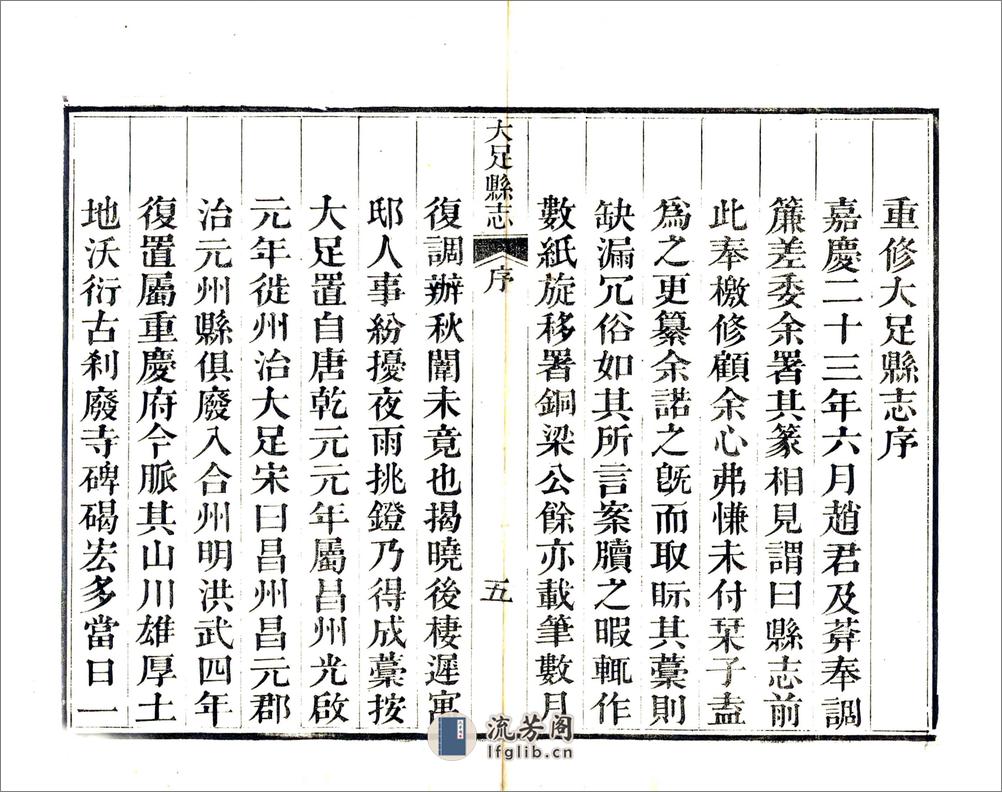 重修大足縣志序
嘉慶二十三年六月趙君及莽奉調
簾差委余署其篆相見謂曰縣志前
此奉檄修顧余心弗慊未付梓子盍
爲之更纂余諾之旣而取眎其藁則
缺漏冗俗如其所言案牘之暇輒作
數紙旋移署銅梁公餘亦載筆數月
大足縣志 序 五
復調辦秋闈未竟也揭曉後棲遲寓
邸人事紛擾夜雨挑鐙乃得成藁按
大足置自唐乾元元年屬昌州光啟
元年徙州治大足宋曰昌州昌元郡
治元州縣俱廢入合州明洪武四年
復置屬重慶府今脈其山川雄厚土
地沃衍古刹廢寺碑碣宏多當日一
流芳阁
lfglib.cn